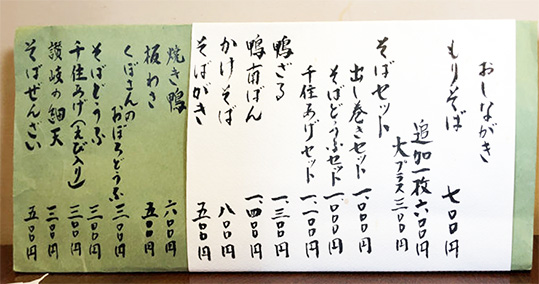 おしながき
もりそば 七〇〇円
追加一枚六〇〇円
大プラス三〇〇円
そばセット
出し巻きセット 一、〇〇〇円
そばどうふセット 一、〇〇〇円
千住あげセット 一、一〇〇円
鴨ざる 一、三〇〇円
鴨南ばん 一、四〇〇円
かけそば 八〇〇円
そばがき 五〇〇円
焼き鴨 六〇〇円
板わさ 五〇〇円
くぼさんの
おぼろどうふ 三〇〇円
そばどうふ 三〇〇円
千住あげ(えび入り) 三〇〇円
讃岐の細天 三〇〇円
そばぜんざい 五〇〇円